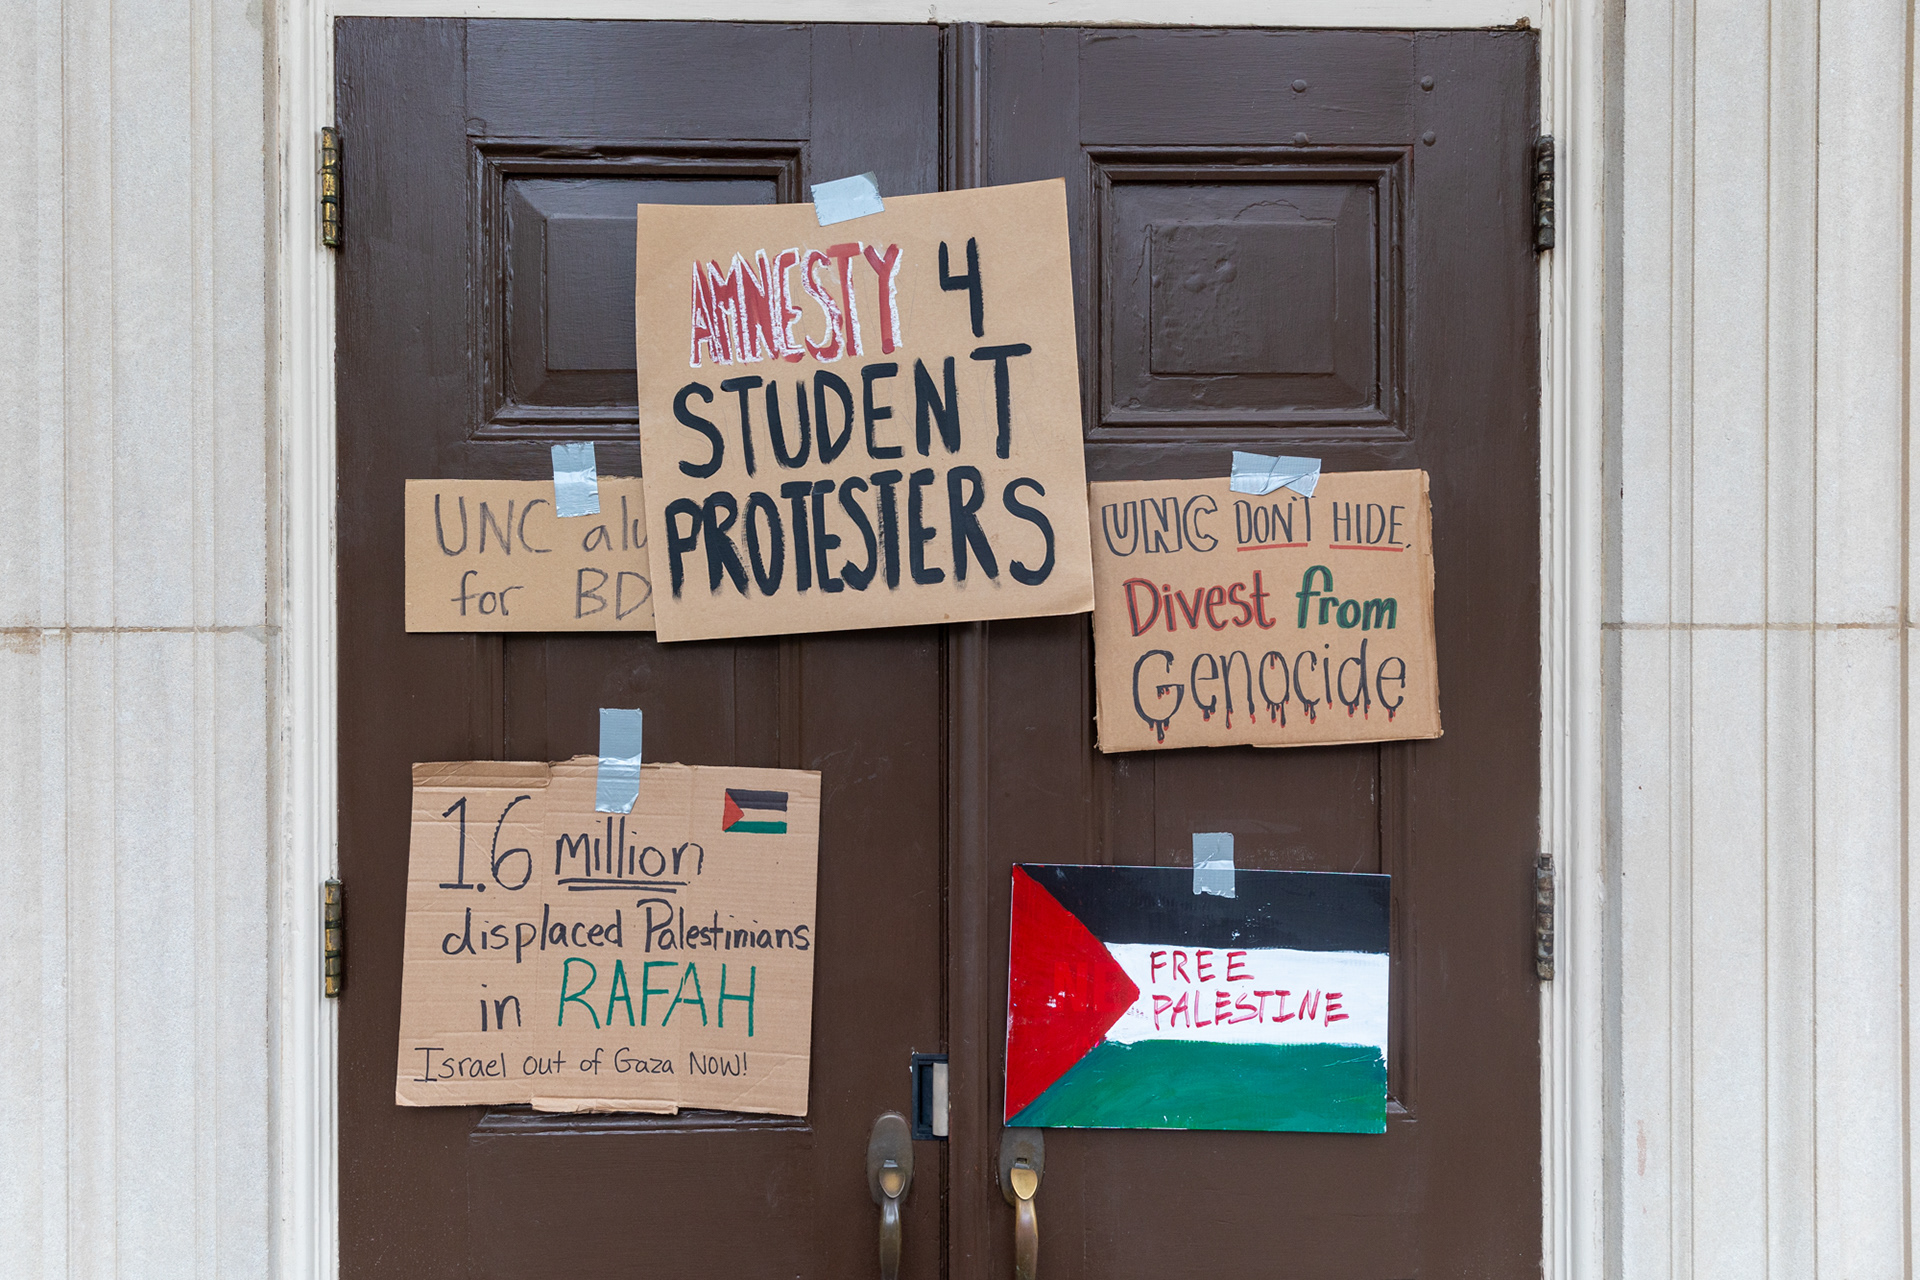 AMNESTY 4
STUDENT
PROTESTERS
UNC
for
UNC DON'T HIDE.
Divest from
Genocide
1.6 million
displaced Palestinians
in RAFAH
Israel out of Gaza NOW!
FREE
PALESTINE